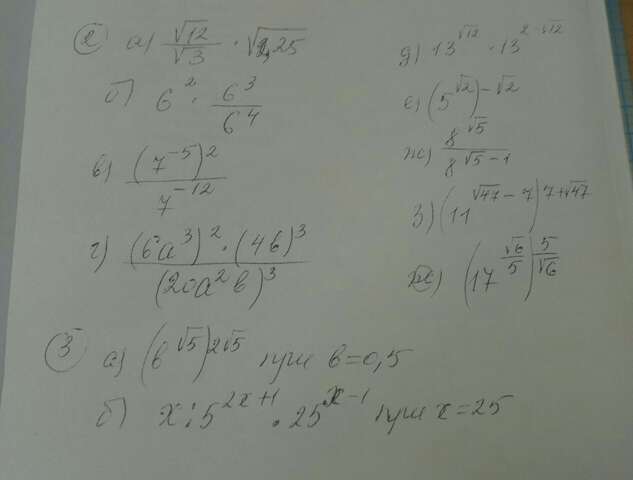 ② а) √12/√3 · √2,25
б) 6² · 6³/6⁴
в) (7⁻⁵)²/7⁻¹²
г) (6a³)² · (4b)³/(20a²b)³
д) 13^√12 · 13^(2-√12)
е) (5^√2)^-√2
ж) 8^√5/8^(√5-1)
з) (11^(√47-7))^(7+√47)
ж) (17^(√6/5))^(5/√6)
③ а) (b^√5)^2√5 при b=0,5
б) x : 5^(2x+1) · 25^(x-1) при x=25